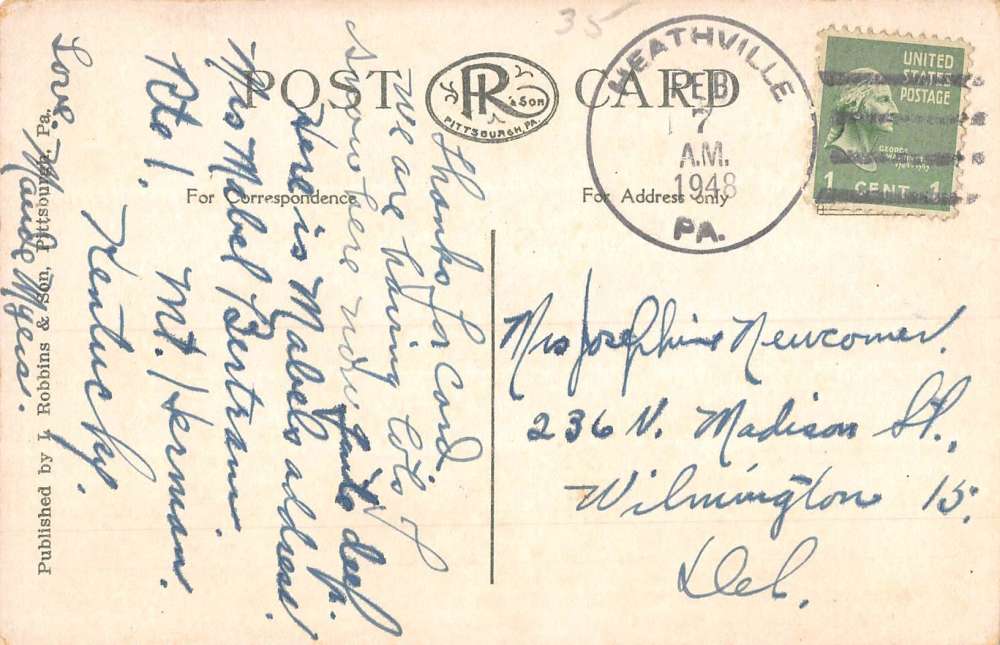 35
POST CARD
R & SON
PITTSBURGH, PA.
HEATHVILLE
FEB
7
A.M.
1948
PA.
UNITED
STATES
POSTAGE
GEORGE
1 CENT 1
For Correspondence
For Address only
Thanks for Card.
We are having lots of
snow here now
deep.
Here is Mabels address
Mrs Mabel Bertram.
Rte 1. Mt. Herman.
Kentucky.
Love. Maude Myers.
Published by I. Robbins & Son, Pittsburgh, Pa.
Mrs Josephine Newcomer.
236 N. Madison St.,
Wilmington 15,
Del.